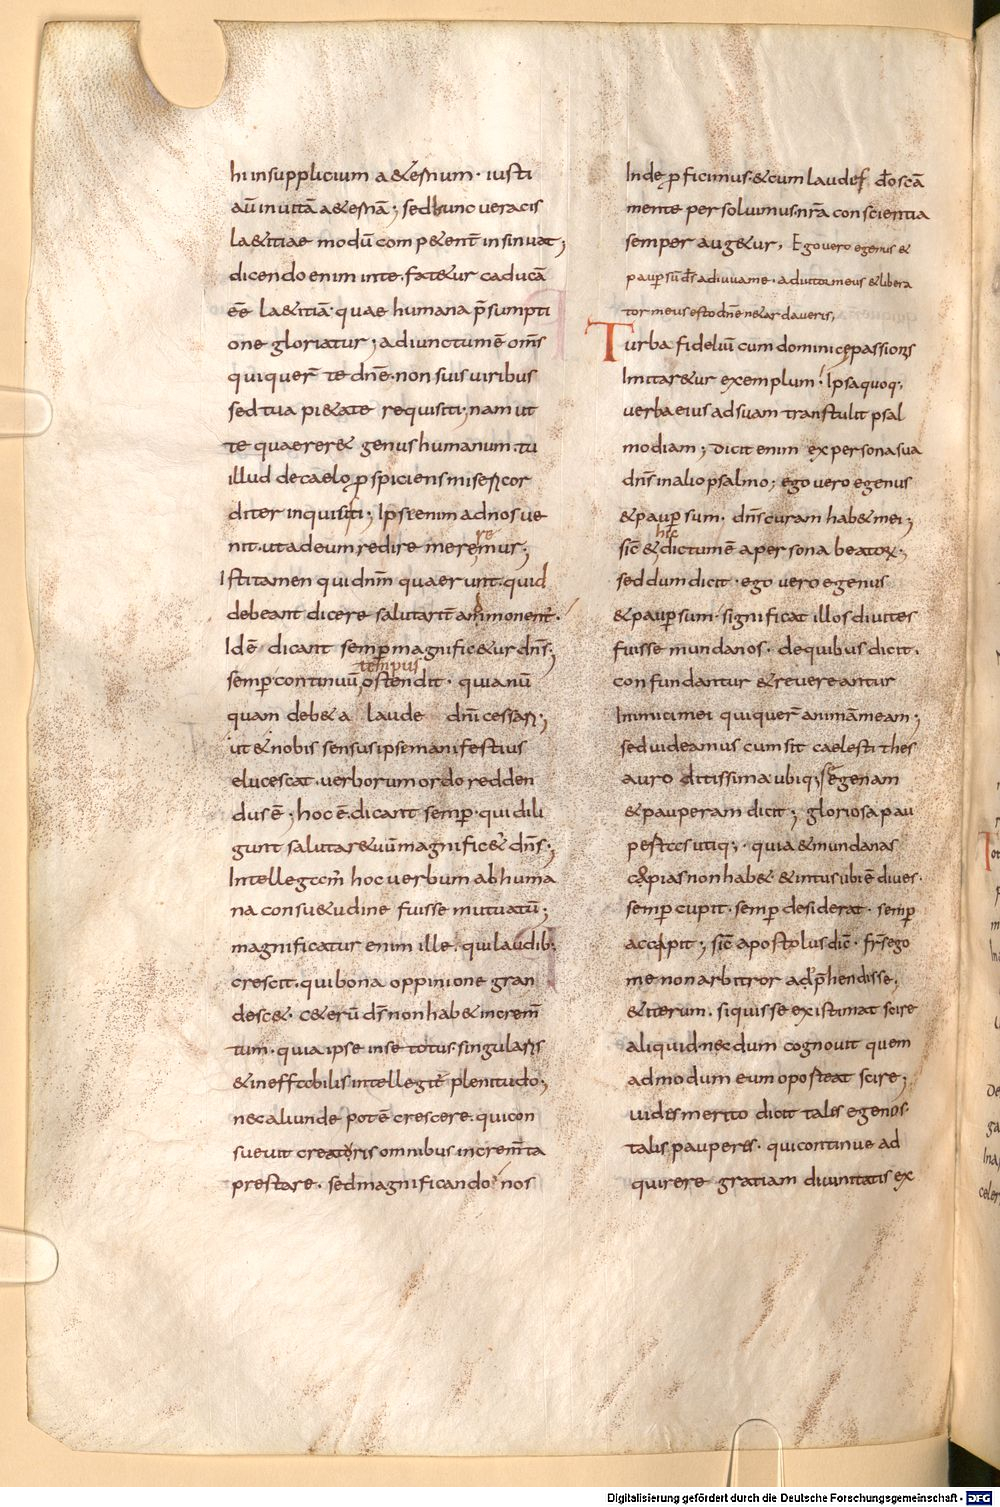 hi in supplicium a&ernum · iusti
aū in uitā a&ernā ; sed hunc ueracis
la&itiae modū comp&ent̄ insinuat ;
dicendo enim inte · fat&ur caducā
eē la&itiā · quae humana p̄sumpti
one gloriatur ; adiunctum ē om̄s
qui quer̄ te dn̄e · non suis uiribus
sed tua pi&ate requisiti · nam ut
te quaerer& genus humanum · tu
illud de caelo ꝑspiciens misericor
diter inquisisti ; Ipse enim ad nos ue
nit · ut ad eum redire meremur ;
re
Isti tamen qui dnm̄ quaerunt · quid
debeant dicere salutarit̄ ammonent̄ ·
Idē dicant semꝑ magnific&ur dn̄s ;
tempus
semꝑ continuū ostendit · quia nū
quam deb& a laude dn̄i cessari ;
ut & nobis sensus ipse manifestius
elucescat · uerborum ordo redden
dus ē ; hoc ē dicant semꝑ · qui dili
gunt salutare uū magnific& dn̄s ;
Intellegem̄ hoc uerbum ab huma
na consu&udine fuisse mutuatū ;
magnificatur enim ille · qui laudib;
crescit · qui bona oppinione gran
desc& · c&erū ds̄ non hab& increm̄
tum · quia ipse in se totus · singularis
& ineffabilis intellegit̄ plenitudo ;
nec aliunde pot ē crescere · qui con
sueuit creatoris omnibus increm̄ta
prestare · sed magnificando nos
Inde ꝑficimus · & cum laudes dō scā
mente persoluimus · nr̄a conscientia
semper aug&ur , Ego uero egenus &
pauꝑ sū ds̄ adiuua me · adiutor meus & libera
tor meus esto dn̄e ne tardaueris ,
Turba fidelium cum dominice passionis
Imitar&ur exemplum · Ipsa quoq;
uerba eius ad suam transtulit psal
modiam ; dicit enim ex persona sua
dn̄s in alio psalmo ; ego uero egenus
& pauꝑ sum · dn̄s curam hab& mei ;
hic
sic̄ & dictum ē a persona beatorum ;
sed dum dicit · ego uero egenus
& pauꝑ sum · significat illos diuites
fuisse mundanos · de quibus dicit ·
confundantur & reuereantur
Inimici mei qui quer̄ animā meam ;
sed uideamus cum sit caelesti thes
auro ditissima ubiq; se egenam
& pauperam dicit ; gloriosa pau
pertas utiq; · quia & mundanas
copias non hab& · & intus ubi ē diues ·
semꝑ cupit · semꝑ desiderat · semꝑ
accipit ; sic̄ apostolus dic̄ · fr̄s ego
me non arbitror adp̄hendisse ;
& iterum · si quis se existimat scire
aliquid · necdum cognouit quem
admodum eum oporteat scire ;
uides merito dicit talis egenus
talis pauperes · qui continue ad
quirere gratiam diuinitatis ex
Digitalisierung gefördert durch die Deutsche Forschungsgemeinschaft - DFG